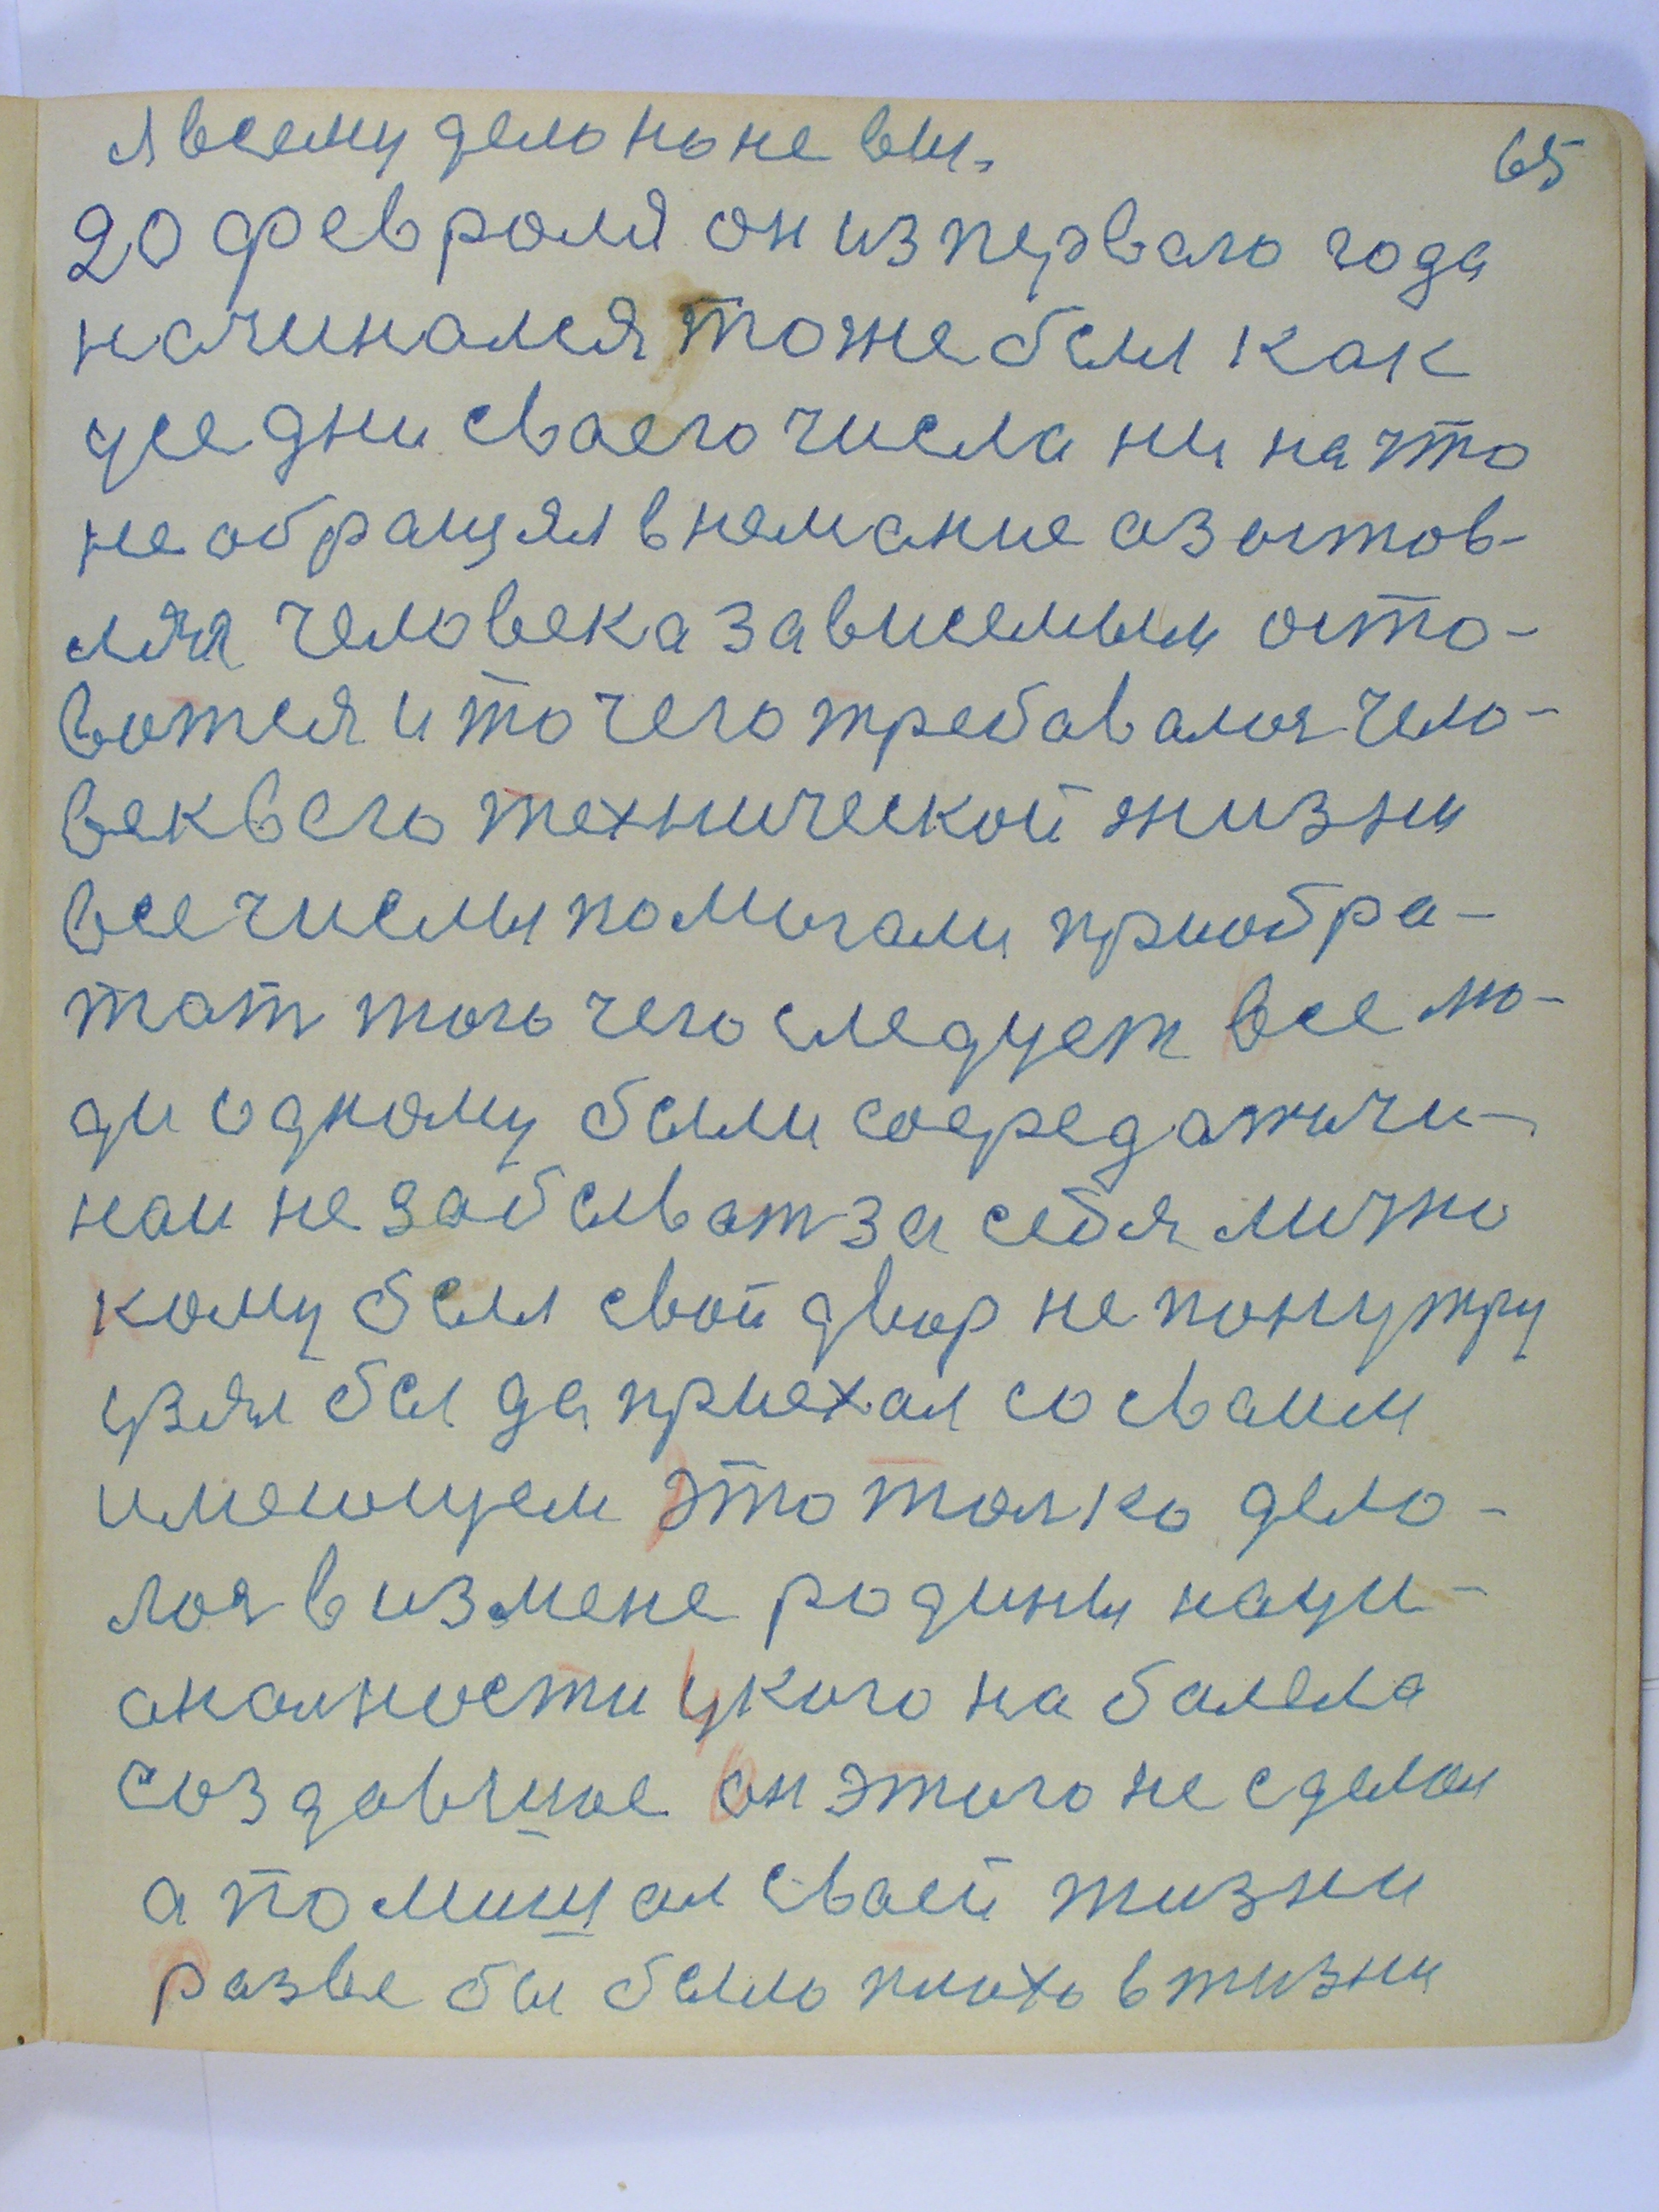 я всему дело но не вы.
65
20 февроля он из первого года
начинался тоже был как
усе дни сваего числа ни на что
не обращял внемание аз остов-
ляя человека зависемым осто-
вотся и то чего требавалоя чело-
век в его технической жизни
все числы помогали приобра-
тат того чего следует все лю-
ди одному были соередаточи-
наи не забыват за себя лично
кому был свой двор не понутру
узял бы да приехал со сваим
имеющем это толко дело-
лоя в измене родины наци-
аналности у кого на болела
создавшое он этого не сделал
а помишал сваей жизни
разве бы было плохо в жизни